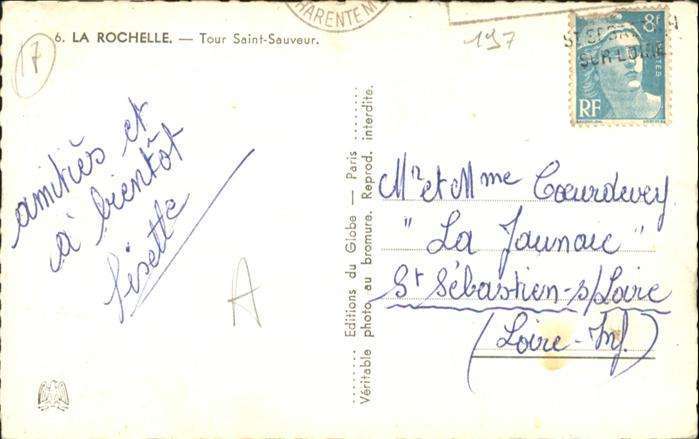 6. LA ROCHELLE. — Tour Saint-Sauveur.
17
amitiés et
à bientôt
Lisette
A
Editions du Globe — Paris
Véritable photo au bromure. Reprod. interdite.
CHARENTE M
197
8F
POSTES
RF
SUR LOIRE
Mr et Mme Coeurdevey
"La Jaunaie"
St Sébastien-s/Loire
(Loire-Inf.)